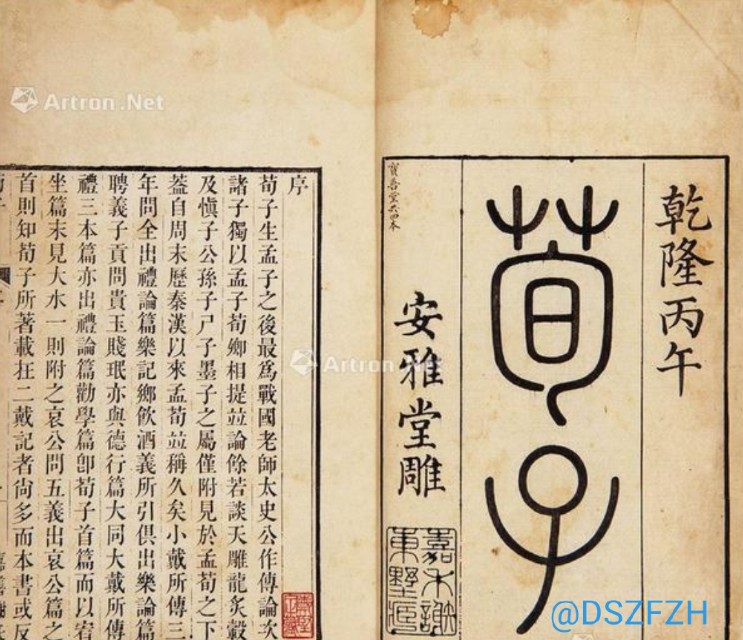 乾隆丙午
荀子
安雅堂雕
序
荀子生孟子之後最為戰國老師太史公作傳論次
諸子獨以孟子荀卿相提竝論餘若談天雕龍炙轂
及慎子公孫子尸子墨子之屬僅附見於孟荀之下
葢自周末歷秦漢以來孟荀竝稱久矣小戴所傳三
年問全出禮論篇樂記鄉飲酒義所引俱出樂論篇
聘義子貢問貴玉賤珉亦與德行篇大同大戴所傳
禮三本篇亦出禮論篇勸學篇卽荀子首篇而以宥
坐篇末見大水一則附之哀公問五義出哀公篇之
首則知荀子所著載在二戴記者尚多而本書或反
Artron.Net
Artron.Net
@DSZFZH